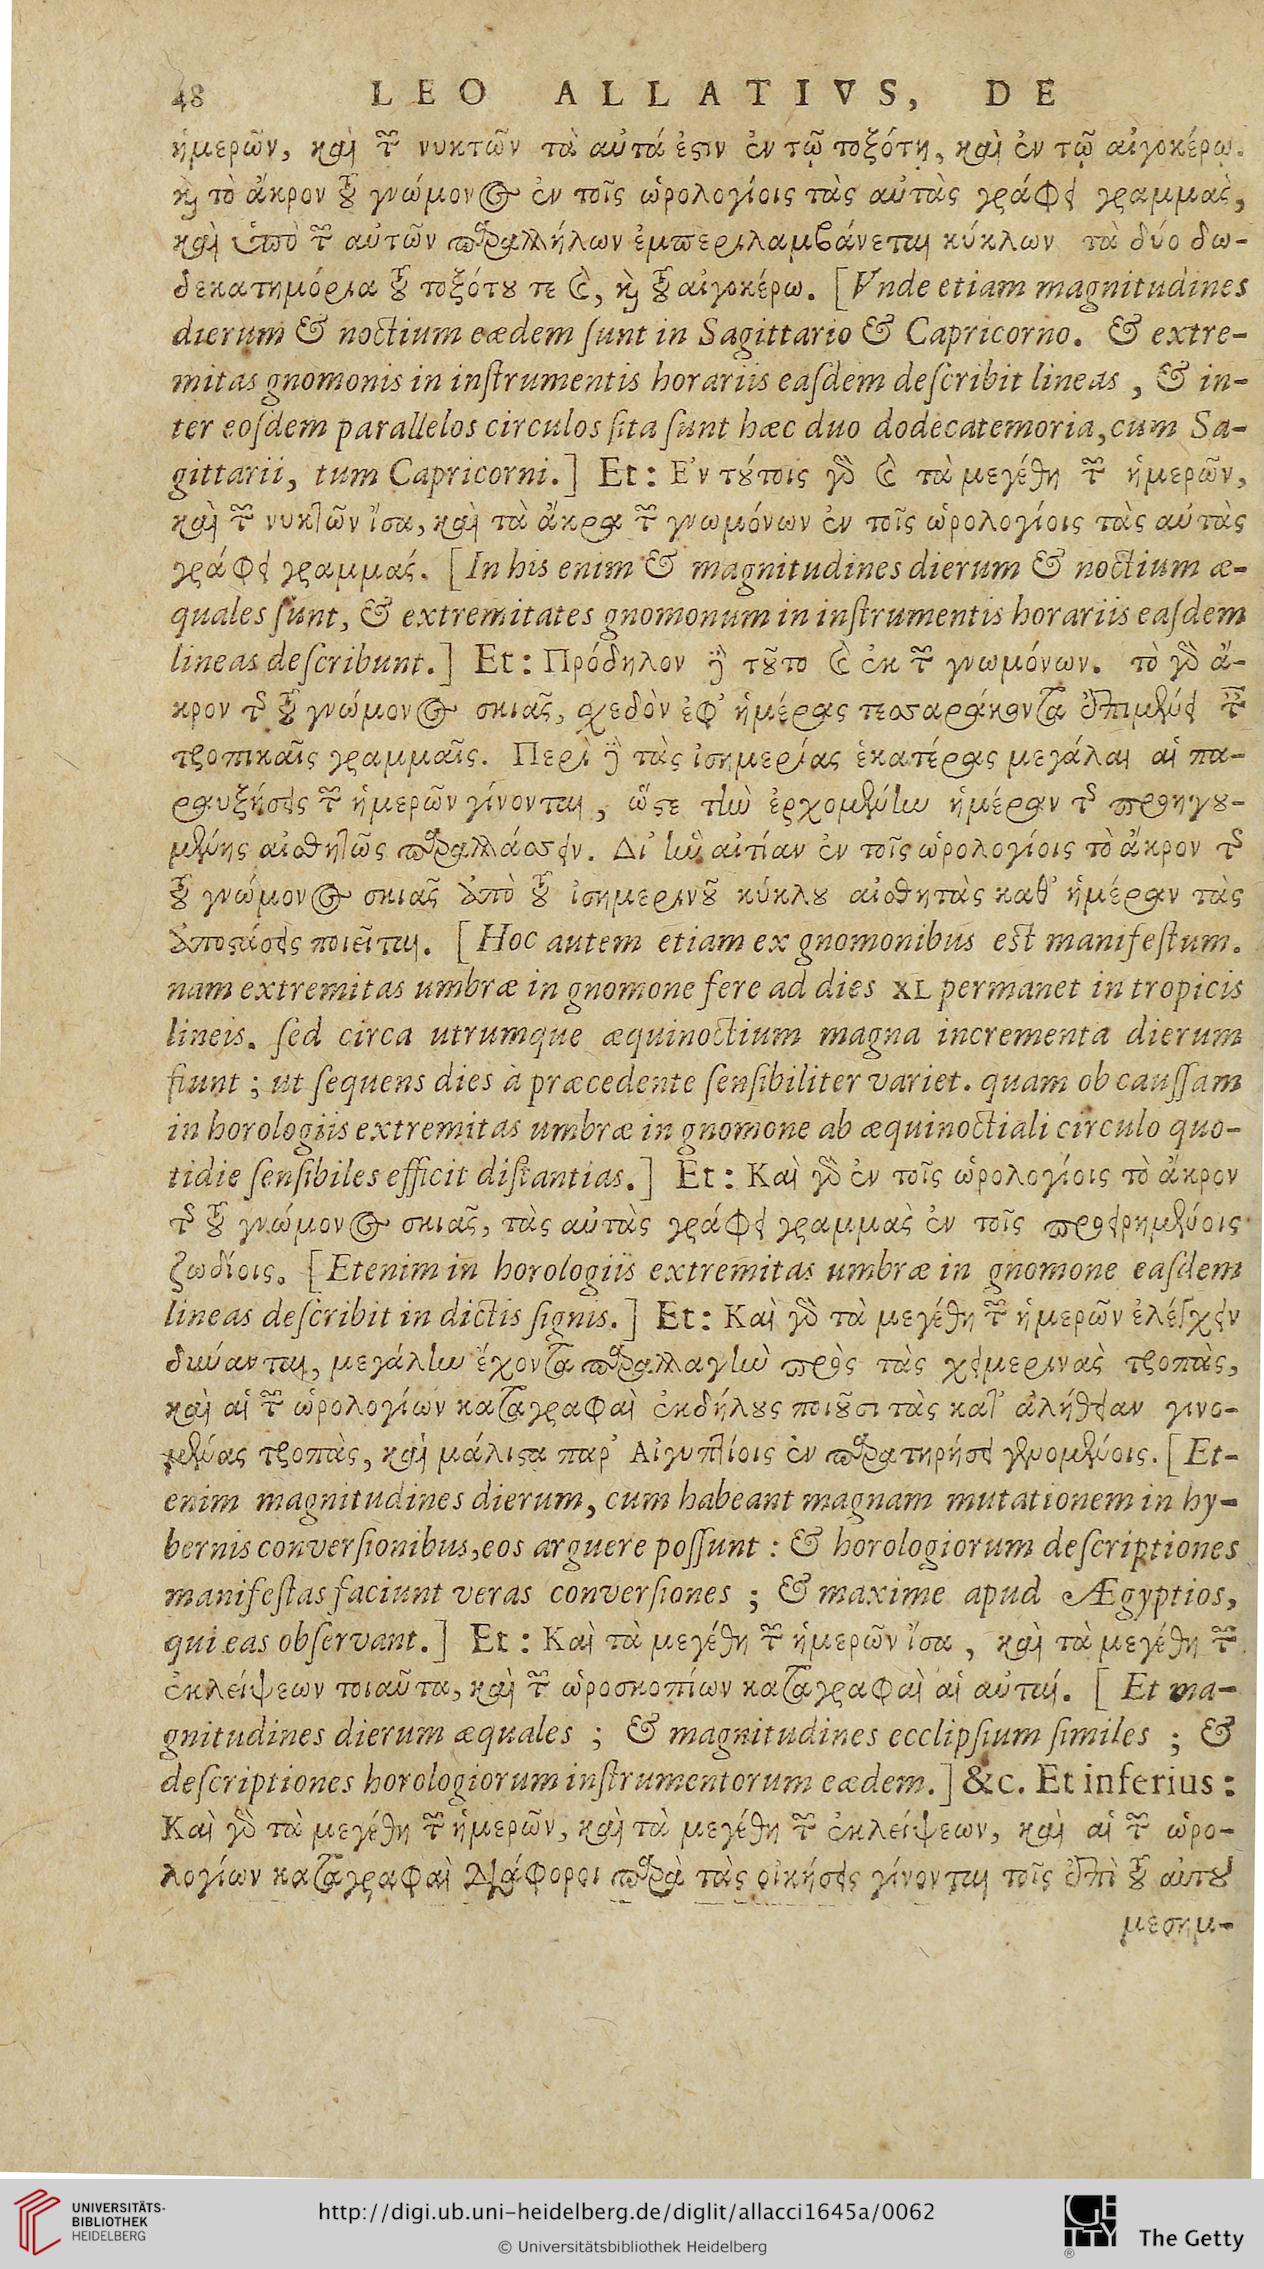 48 LEO ALLATIVS, DE
ἡμερῶν, καὶ τῶν νυκτῶν τὰ αὐτά ἐϛιν ἐν τῷ τοξότῃ, καὶ ἐν τῷ αἰγοκέρῳ.
καὶ τὸ ἄκρον τοῦ γνώμονος ἐν τοῖς ὡρολογίοις τὰς αὐτὰς γράφει γραμμὰς,
καὶ ὑπὸ τῶν αὐτῶν παραλλήλων ἐμπεριλαμβάνεται κύκλων τὰ δύο δω-
δεκατημόρια τοῦ τοξότου τε καὶ, καὶ τοῦ αἰγοκέρω. [Vnde etiam magnitudines
dierum & noctium eædem ſunt in Sagittario & Capricorno. & extre-
mitas gnomonis in inſtrumentis horariis eaſdem deſcribit lineas, & in-
ter eoſdem parallelos circulos ſita ſunt hæc duo dodecatemoria, cum Sa-
gittarii, tum Capricorni.] Et: Ε᾿ν τούτοις γὸ καὶ τὰ μεγέθη τῶν ἡμερῶν,
καὶ τῶν νυκτῶν ἴσα, καὶ τὰ ἄκρα τῶν γνωμόνων ἐν τοῖς ὡρολογίοις τὰς αὐτὰς
γράφει γραμμάς. [In his enim & magnitudines dierum & noctium æ-
quales ſunt, & extremitates gnomonum in inſtrumentis horariis eaſdem
lineas deſcribunt.] Et: Πρόδηλον δὲ τοῦτο καὶ ἐκ τῶν γνωμόνων. τὸ γὸ ἄ-
κρον τῆς τοῦ γνώμονος σκιᾶς, σχεδὸν ἐφ᾿ ἡμέρας τεσσαράκοντα ἐπιμένει ταῖς
τροπικαῖς γραμμαῖς. Περὶ δὲ τὰς ἰσημερίας ἑκατέρας μεγάλαι αἱ πα-
ραυξήσεις τῶν ἡμερῶν γίνονται, ὥϛε τὴν ἐρχομένην ἡμέραν τῆς προηγου-
μένης αἰσθητῶς παραλλάσσειν. Δι᾿ ἣν αἰτίαν ἐν τοῖς ὡρολογίοις τὸ ἄκρον τῆς
τοῦ γνώμονος σκιᾶς ἀπὸ τοῦ ἰσημερινοῦ κύκλου αἰσθητὰς καθ᾿ ἡμέραν τὰς
ἀποϛάσεις ποιεῖται. [Hoc autem etiam ex gnomonibus eſt manifeſtum.
nam extremitas umbræ in gnomone fere ad dies XL permanet in tropicis
lineis. ſed circa utrumque æquinoctium magna incrementa dierum
fiunt; ut ſequens dies à præcedente ſenſibiliter variet. quam ob cauſſam
in horologiis extremitas umbræ in gnomone ab æquinoctiali circulo quo-
tidie ſenſibiles efficit diſtantias.] Et: Καὶ γὸ ἐν τοῖς ὡρολογίοις τὸ ἄκρον
τῆς τοῦ γνώμονος σκιᾶς, τὰς αὐτὰς γράφει γραμμὰς ἐν τοῖς προειρημένοις
ζωδίοις. [Etenim in horologiis extremitas umbræ in gnomone eaſdem
lineas deſcribit in dictis ſignis.] Et: Καὶ γὸ τὰ μεγέθη τῶν ἡμερῶν ἐλέγχειν
δύναται, μεγάλην ἔχοντα παραλλαγὴν πρὸς τὰς χειμερινὰς τροπὰς,
καὶ αἱ τῶν ὡρολογίων καταγραφαὶ ἐκδήλους ποιοῦσι τὰς κατ᾿ ἀλήθειαν γινο-
μένας τροπὰς, καὶ μάλιϛα παρ᾿ Αἰγυπτίοις ἐν παρατηρήσει γενομένοις. [Et-
enim magnitudines dierum, cum habeant magnam mutationem in hy-
bernis converſionibus, eos arguere poſſunt: & horologiorum deſcriptiones
manifeſtas faciunt veras converſiones; & maxime apud Ægyptios,
qui eas obſervant.] Et: Καὶ τὰ μεγέθη τῶν ἡμερῶν ἴσα, καὶ τὰ μεγέθη τῶν
ἐκλείψεων τοιαῦτα, καὶ τῶν ὡροσκοπίων καταγραφαὶ αἱ αὐταί. [Et ma-
gnitudines dierum æquales; & magnitudines ecclipſium ſimiles; &
deſcriptiones horologiorum inſtrumentorum eædem.] &c. Et inferius:
Καὶ γὸ τὰ μεγέθη τῶν ἡμερῶν, καὶ τὰ μεγέθη τῶν ἐκλείψεων, καὶ αἱ τῶν ὡρο-
λογίων καταγραφαὶ διάφοροι παρὰ τὰς οἰκήσεις γίνονται τοῖς ἐπὶ τοῦ αὐτοῦ
μεσημ-
UNIVERSITÄTS-
BIBLIOTHEK
HEIDELBERG
http://digi.ub.uni-heidelberg.de/diglit/allacci1645a/0062
© Universitätsbibliothek Heidelberg
GETTY
The Getty